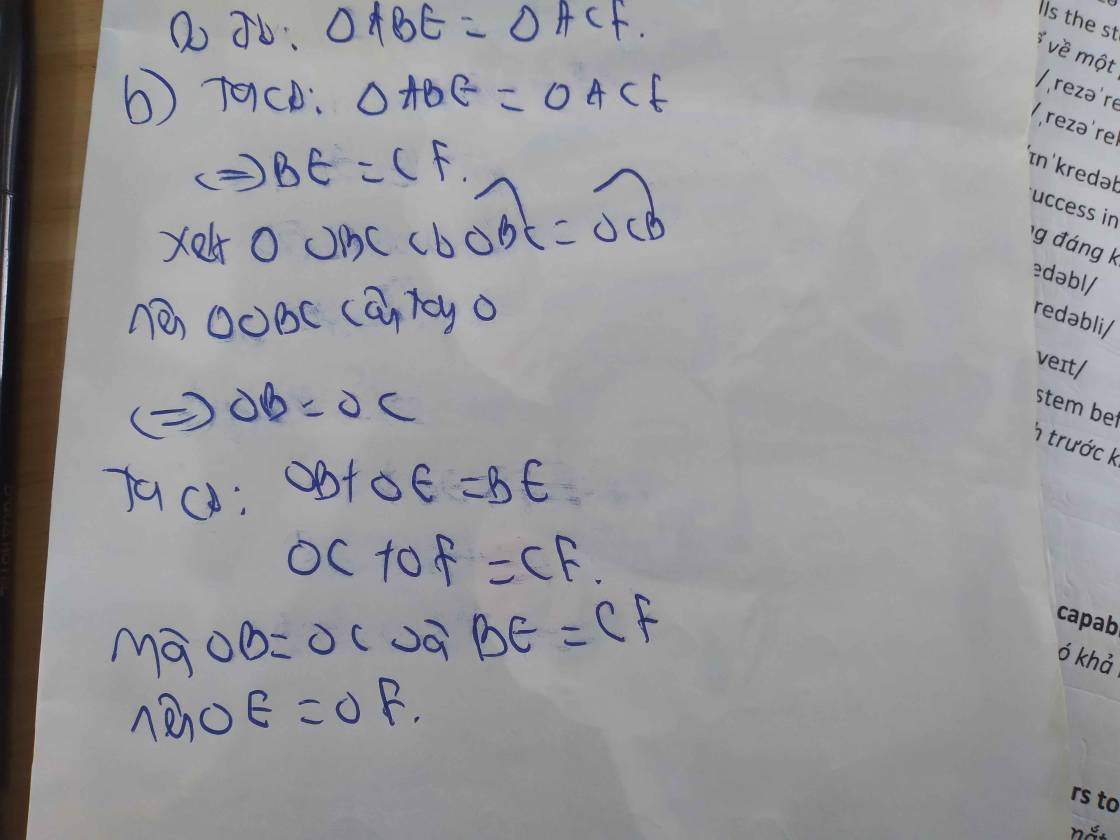 Do đó: Δ ABE = Δ ACF.
b) Ta có: Δ ABE = Δ ACF
<=> BE = CF.
xét Δ OBC có OBC = OCB
nên Δ OBC cân tại O
<=> OB = OC
Ta có: OB + OE = BE
OC + OF = CF.
Mà OB = OC và BE = CF
nên OE = OF.
lls the st
ể về một
/ˌrezəˈre
/ˌrezəˈrek
/ɪnˈkredəb
success in
ng đáng k
redəbl/
redəbli/
veɪt/
stem bef
h trước k
capab
ó khả
rs to
nắt